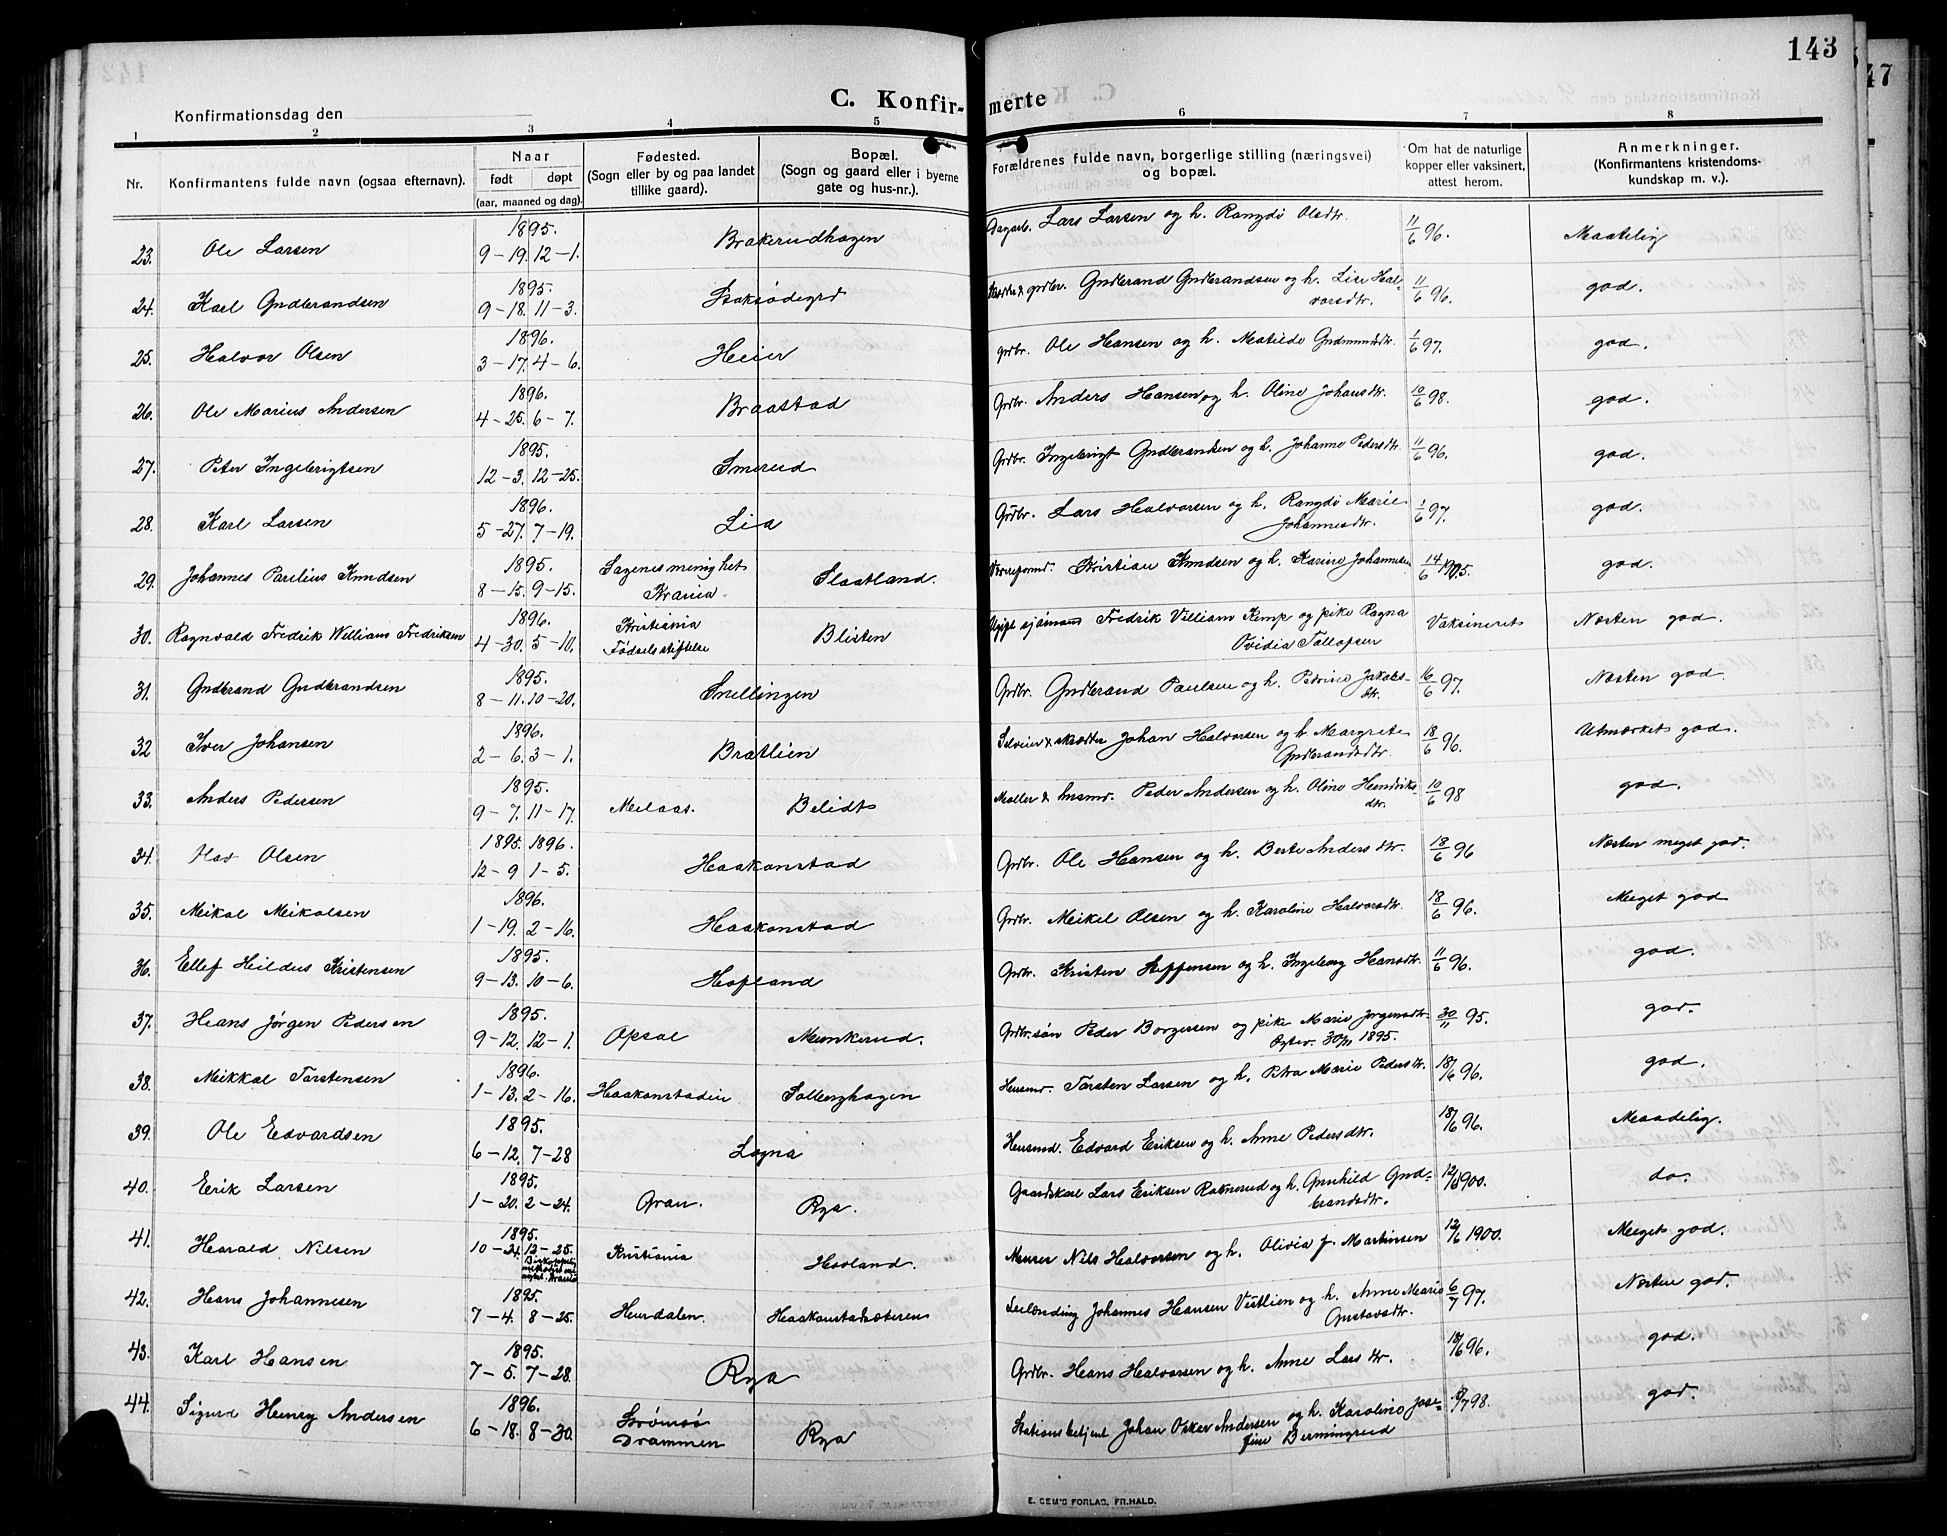 143
47
C. Konfir-merte
Konfirmationsdag den
1 2 3 4 5 6 7 8
Nr. Konfirmantens fulde navn (ogsaa efternavn). Naar født døpt (aar, maaned og dag). Fødested. (Sogn eller by og paa landet tillike gaard). Bopæl. (Sogn og gaard eller i byerne gate og hus-nr.). Forældrenes fulde navn, borgerlige stilling (næringsvei) og bopæl. Om hat de naturlige kopper eller vaksinert, attest herom. Anmerkninger. (Konfirmantens kristendoms-kundskap m. v.).
23. Ole Larsen 1895. 9-19. 12-1. Brakerudhagen Dagarb. Lars Larsen og h. Rangdi Olsdtr. 11/6 96. Maatelig
24. Karl Gudbrandsen 1895. 9-18. 11-3. grdbr. Gudbrand Gudbrandsen og h. Lise Hal-
vorsdtr. 11/6 96. god.
25. Halvor Olsen 1896. 3-17. 4-6. Heier grdbr. Ole Hansen og h. Matilde Gudmundsdtr. 1/6 97. god.
26. Ole Marius Andersen 1896. 4-25. 6-7. Braastad Grdbr. Anders Hansen og h. Oline Johansdtr. 10/6 98. god.
27. Peter Ingebrigtsen 1895. 12-3. 12-25. Smerud Grdbr. Ingebrigt Gudbrandsen og h. Johanne Pedersdtr. 11/6 96. god.
28. Karl Larsen 1896. 5-27. 7-19. Lia Grdbr. Lars Halvorsen og h. Rangdi Marie
Johannesdtr. 1/6 97. god.
29. Johannes Paulius Knudsen 1895. 8-15. 9-15. Sagenes menighet Kr.ania. Slaatland. Kristian Knudsen og h. Karine Johannesen 14/6 1905. god.
30. Ragnvald Fredrik William Fredriksen 1896. 4-30. 5-10. Kristiania Fødselsstiftelse Blisten Ugift sjømand Fredrik Villiam Kemp og pike Ragna
Ovidia Tollofsen Vaksinert Næsten god.
31. Gudbrand Gudbrandsen 1895. 8-11. 10-20. Snellingen Grdbr. Gudbrand Paulsen og h. Petrine Jakobs-
dtr. 16/6 97. Næsten god.
32 Iver Johansen 1896. 2-6. 3-1. Bratlien Selveier & skrædder Johan Halvorsen og h. Margrete
Gudbrandsdtr. 18/6 96. Utmærket god.
33. Anders Pedersen 1895. 9-7. 11-17. Melaas. Belidt Møller & husmd. Peder Andersen og h. Oline Hendriks-
dtr. 10/6 98 god.
34. Olav Olsen 1895. 1896. 12-9 1-5. Haakonstad Grdbr. Ole Hansen og h. Berte Andersdtr. 18/6 96 Næsten meget god.
35. Meikal Meikalsen 1896. 1-19. 2-16. Haakonstad Grdbr. Meikel Olsen og h. Karoline Halvorsdtr. 18/6 96. Meget god
36. Ellef Hildus Kristensen 1895. 9-13. 10-6. Hofland Grdbr. Kristen Steffensen og h. Ingeborg Hansdtr. 11/6 96. god.
37. Hans Jørgen Pedersen 1895. 9-12. 12-1. Opsal Munkerud. Grdbr.søn Peder Borgersen og pike Marie Jørgensdtr.
30/11 1895. 30/11 95. god.
38. Mikkal Torstensen 1896. 1-13. 2-16. Haakonstadeie Solberghagen Husmd. Torsten Larsen og h. Petra Marie Pedersdtr. 18/6 96. god.
39. Ole Edvardsen 1895. 6-12. 7-28 Løgna Husmd. Edvard Eriksen og h. Anne Pedersdtr. 18/6 96. Maadelig.
40. Erik Larsen 1895. 1-20. 2-24. Gran. Rya. Gaardskarl Lars Eriksen Raknerud og h. Gunhild Gud-
brandsdtr. 12/6 1900. do.
41. Harald Nilsen 1895. 10-24. 12-25. Kristiania Hovland. Murer Nils Halvorsen og h. Olivia f. Martinsen 12/6 1900. Meget god.
42. Hans Johannesen 1895. 7-4. 8-25. Hurdalen. Haakonstadsæteren Leilænding Johannes Hansen Vestlien og h. Anne Marie
Gustavsdtr. 6/7 97. Næsten god.
43. Karl Hansen 1895. 7-5. 7-28. Rya Grdbr. Hans Halvorsen og h. Anne Larsdtr. 18/6 96. god.
44. Sigurd Henry Andersen 1896. 6-18. 8-30. Strømsø Drammen Rya Stationsbetjent Johan Oskar Andersen og h. Karoline Jose-
fine Bermingrud 98. god.
E. SEM'S FORLAG, FR.HALD.